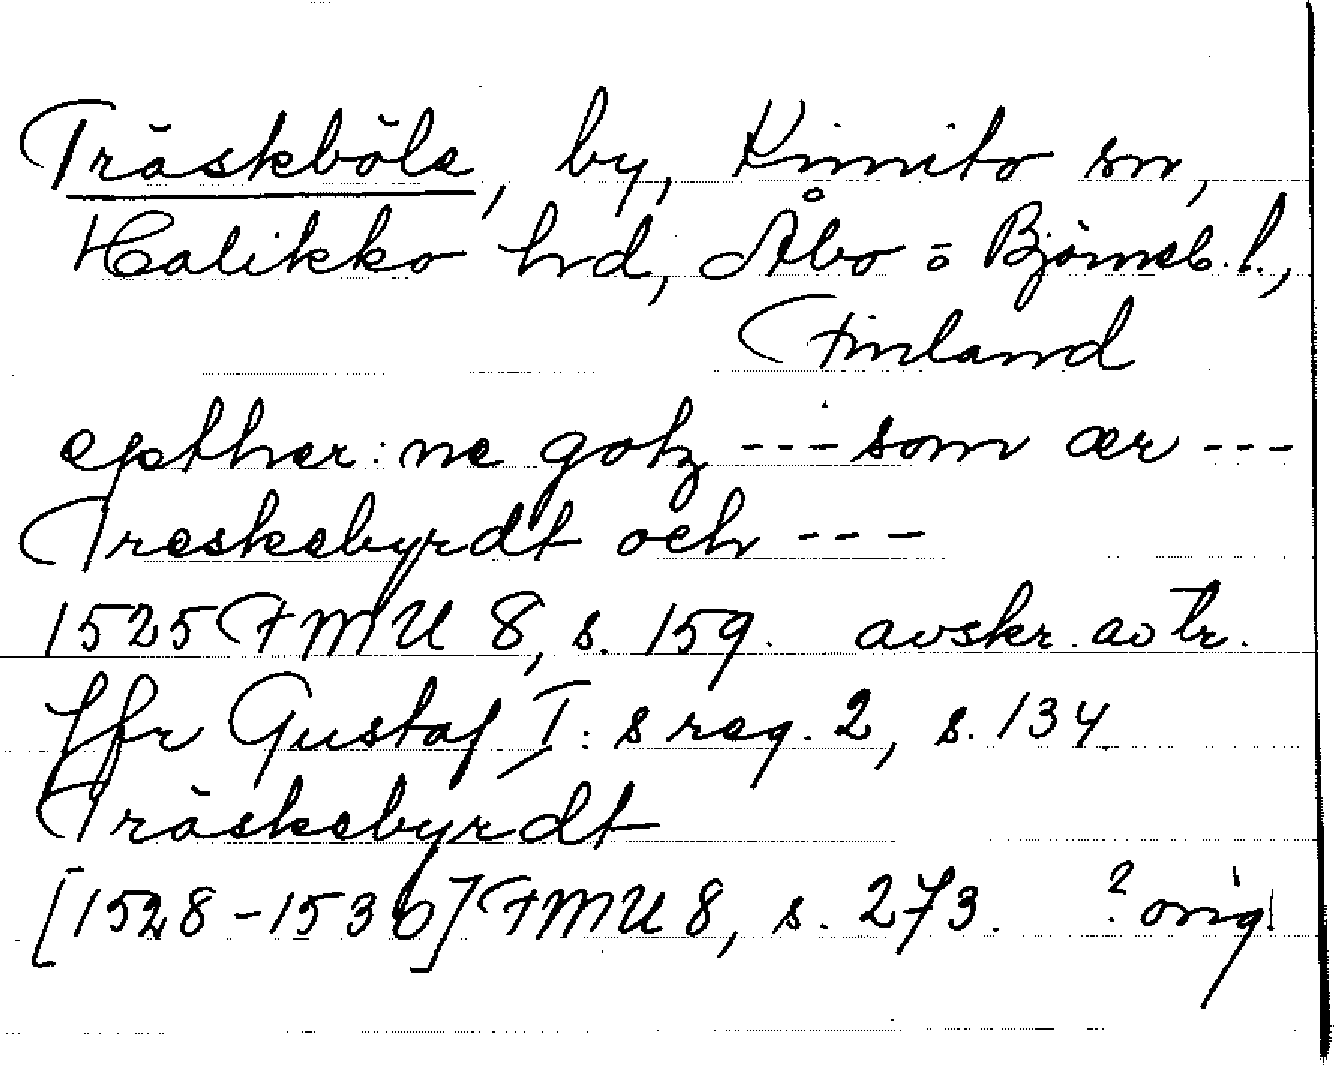 Träskböle, by, Kimito sn,
Halikko hd, Åbo = Björneb. l.,
Finland
epther: ne gotz --- som ær ---
Treskebyrdt och ---
1525 FMU 8, s. 159. avskr. av tr.
Jfr Gustaf I: s reg. 2, s. 134
Träskebyrdt
[1528-1530] FMU 8, s. 273. ? orig